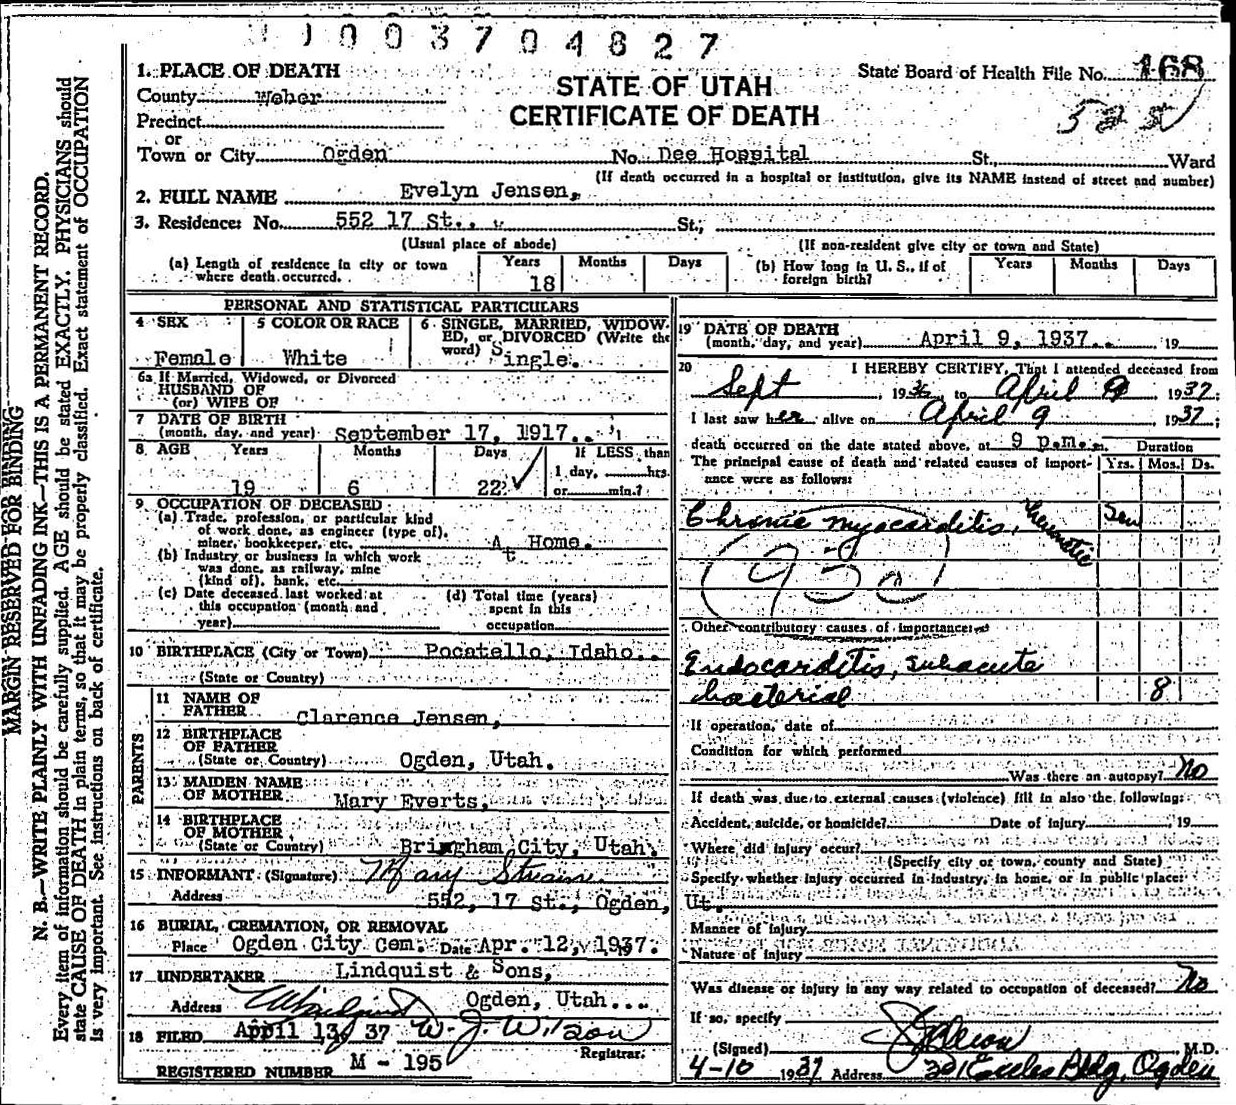 1003704827
1. PLACE OF DEATH
County Weber
Precinct
or
Town or City Ogden No. Dee Hospital St., Ward
STATE OF UTAH
CERTIFICATE OF DEATH
State Board of Health File No. 168
(If death occurred in a hospital or institution, give its NAME instead of street and number)
2. FULL NAME Evelyn Jensen,
3. Residence: No. 552 17 St., St.,
(Usual place of abode)
(If non-resident give city or town and State)
(a) Length of residence in city or town where death occurred. Years 18 Months Days
(b) How long in U. S., if of foreign birth? Years Months Days
PERSONAL AND STATISTICAL PARTICULARS
4 SEX Female
5 COLOR OR RACE White
6 SINGLE, MARRIED, WIDOWED, or DIVORCED (Write the word) Single.
6a If Married, Widowed, or Divorced
HUSBAND OF
(or) WIFE OF
7 DATE OF BIRTH
(month, day, and year) September 17, 1917.
8 AGE Years 19 Months 6 Days 22 If LESS than 1 day, hrs. or min.?
9 OCCUPATION OF DECEASED
(a) Trade, profession, or particular kind
of work done, as engineer (type of),
miner, bookkeeper, etc. At Home.
(b) Industry or business in which work
was done, as railway, mine
(kind of), bank, etc.
(c) Date deceased last worked at
this occupation (month and
year)
(d) Total time (years)
spent in this
occupation
10 BIRTHPLACE (City or Town) Pocatello, Idaho.
(State or Country)
PARENTS
11 NAME OF
FATHER Clarence Jensen,
12 BIRTHPLACE
OF FATHER
(State or Country) Ogden, Utah.
13 MAIDEN NAME
OF MOTHER Mary Everts,
14 BIRTHPLACE
OF MOTHER
(State or Country) Bringham City, Utah.
15 INFORMANT (Signature) Mary
Address 552, 17 St., Ogden, Ut.
16 BURIAL, CREMATION, OR REMOVAL
Place Ogden City Cem. Date Apr. 12, 1937.
17 UNDERTAKER Lindquist & Sons,
Address Ogden, Utah.
18 FILED April 13, 37 W. J. Wilson
Registrar.
REGISTERED NUMBER M - 195
19 DATE OF DEATH
(month, day, and year) April 9, 1937. 19
20 I HEREBY CERTIFY, That I attended deceased from
Sept 1936, to April 9 1937;
I last saw her alive on April 9, 1937;
death occurred on the date stated above, at 9 p.m. Duration
The principal cause of death and related causes of importance were as follows: Yrs. Mos. Ds.
Chronic myocarditis, rheumatic
930
Other contributory causes of importance:
Endocarditis, subacute
bacterial 8
If operation, date of
Condition for which performed
Was there an autopsy? No
If death was due to external causes (violence) fill in also the following:
Accident, suicide, or homicide? Date of injury 19
Where did injury occur?
(Specify city or town, county and State)
Specify whether injury occurred in industry, in home, or in public place:
Manner of injury
Nature of injury
Was disease or injury in any way related to occupation of deceased? No
If so, specify
(Signed) M.D.
4-10 1937 Address 301 Eccles Bldg, Ogden
MARGIN RESERVED FOR BINDING
N. B.—WRITE PLAINLY WITH UNFADING INK—THIS IS A PERMANENT RECORD.
Every item of information should be carefully supplied. AGE should be stated EXACTLY. PHYSICIANS should
state CAUSE OF DEATH in plain terms, so that it may be properly classified. Exact statement of OCCUPATION
is very important. See instructions on back of certificate.